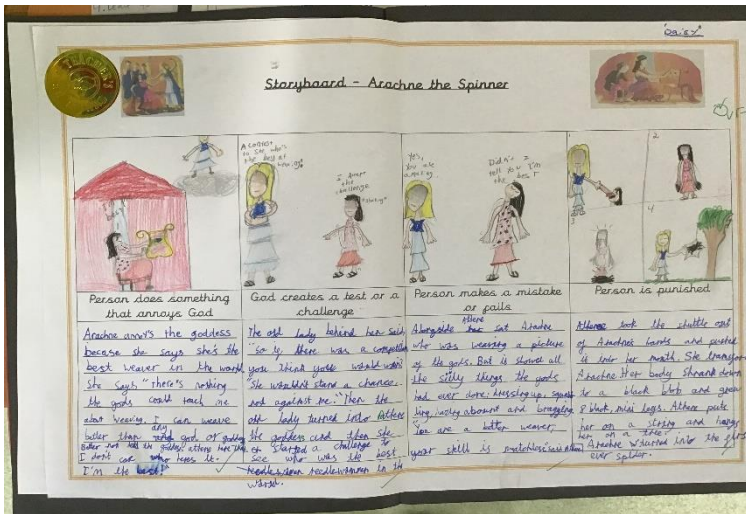 "Daisy"
TEACHER'S
Storyboard - Arachne the Spinner
A contest
to see who's
the best at
I accept
the
challenge
Yes,
you are
amazing
Didn't I
tell you I'm
the best
1
2
3
4
Person does something
that annoys God
God creates a test or a
challenge
Person makes a mistake
or fails
Person is punished
Arachne annoy's the goddess
because she says she's the
best weaver in the world
She says "there's nothing
the gods could teach me
about weaving. I can weave
better than any god or goddess
I don't care who hears it.
I'm the best!
The old lady behind her said,
"so if there was a competition
you think you would win?"
"She wouldn't stand a chance
not against me." Then the
old lady turned into Athene
the goddess and then she
started a challenge to
see who was the best
needlewoman in the
world.
Alongside Athene sat Arachne
who was weaving a picture
of the gods. But is showed all
the silly things the gods
had ever done: dressing up,
lazing around and bragging.
"You are a better weaver,
your skill is matchless"
Athene took the shuttle out
of Arachne's hands and pushed
it into her mouth. She transform
Arachne. Her body shrank down
to a black blob and grew
8 black, mini legs. Athene puts
her on a string and hangs
her on a tree.
Arachne w turned into the first
ever spider.